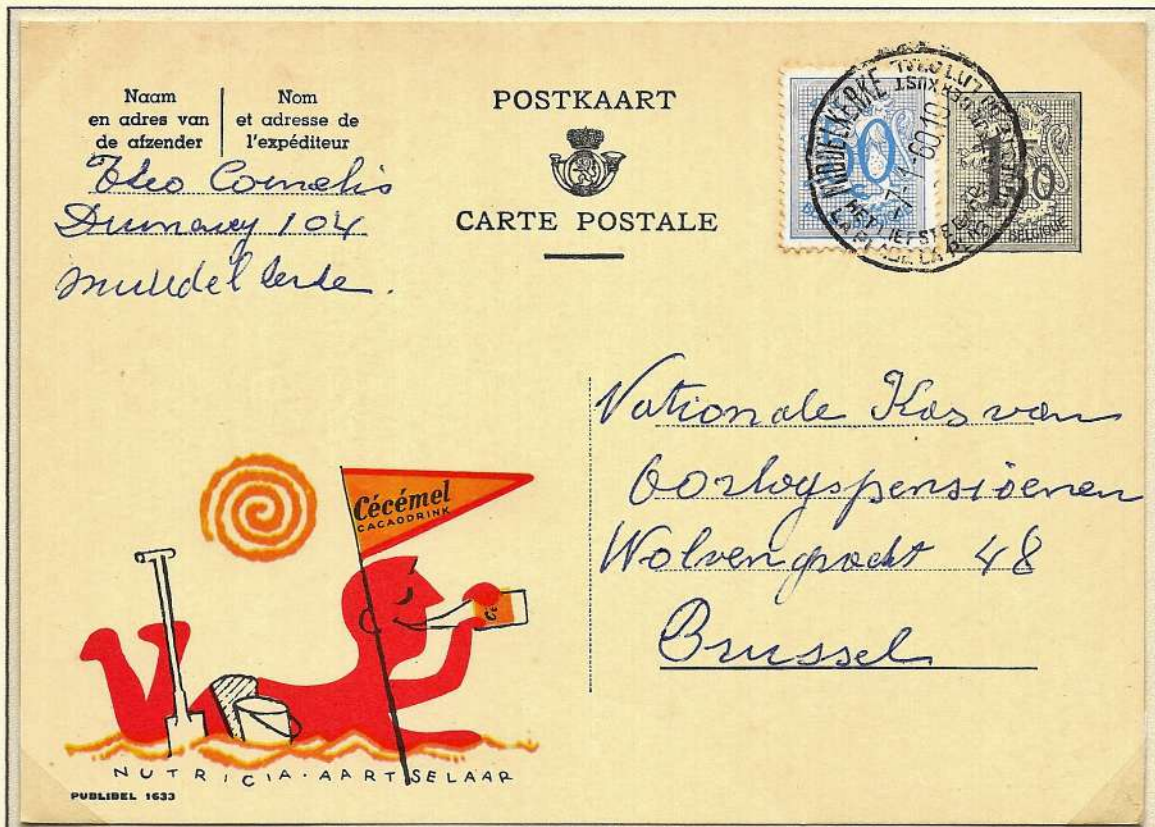 Naam
en adres van
de afzender
Nom
et adresse de
l'expéditeur
Theo Cornelis
104
POSTKAART
CARTE POSTALE
50
MIDDELKERKE
HET LIEFSTE
LA PLAGE LA
1F50
BELGIQUE
Nationale Kas van
Oorlogspensioenen
Wolvengracht 48
Brussel
Cécémel
CACAODRINK
NUTRICIA · AARTSELAAR
PUBLIBEL 1633